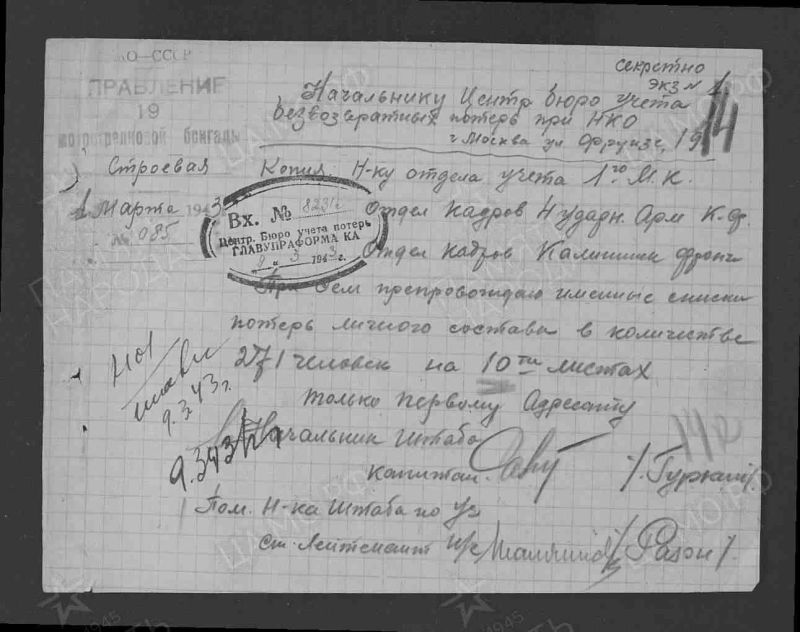 НКО–СССР
УПРАВЛЕНИЕ
19
мотострелковой бригады
Строевая
1 Марта 1943г
№ 085
секретно
экз № 1
Начальнику Центр бюро учета
безвозвратных потерь при НКО
г Москва ул Фрунзе, 19
14
Копия Н-ку отдела учета 1го М.К.
Отдел кадров 4 ударн. Арм К.ф.
Отдел кадров Калинин фронт
Вх. № 8231с
Центр. Бюро учета потерь
ГЛАВУПРАФОРМА КА
9 " 3 1943 г.
При сем препровождаю именные списки
потерь личного состава в количестве
271 человек на 10ти листах
только первому Адресату
9.3.43г.
9.3.43
Начальник штаба
капитан
Пом. Н-ка Штаба по уч
ст. лейтенант
ЦАМО.РФ